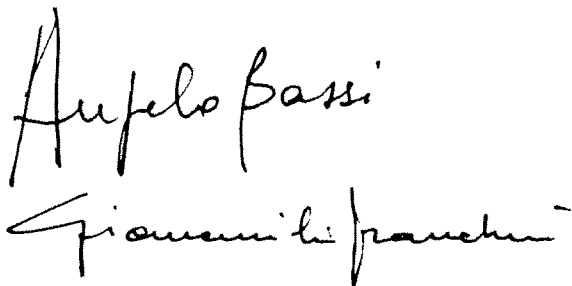 Angelo Bassi
Giovanni di Franchini